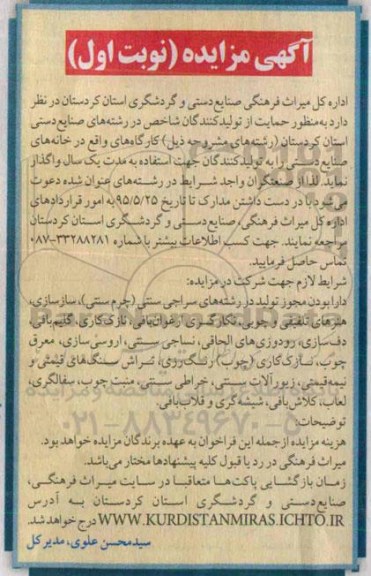 آگهی مزایده (نوبت اول)
اداره کل میراث فرهنگی صنایع دستی و گردشگری استان کردستان در نظر
دارد به منظور حمایت از تولیدکنندگان شاخص در رشته‌های صنایع دستی
استان کردستان (رشته‌های مشروحه ذیل) کارگاه‌های واقع در خانه‌های
صنایع دستی را به تولیدکنندگان جهت استفاده به مدت یک سال واگذار
نماید. لذا از صنعتگران واجد شرایط در رشته‌های عنوان شده دعوت
می‌شود با در دست داشتن مدارک تا تاریخ ۹۵/۵/۲۵ به امور قراردادهای
اداره کل میراث فرهنگی، صنایع دستی و گردشگری استان کردستان
مراجعه نمایند. جهت کسب اطلاعات بیشتر با شماره ۳۳۲۸۸۲۸۱-۰۸۷
تماس حاصل فرمایید.
شرایط لازم جهت شرکت در مزایده:
دارا بودن مجوز تولید در رشته‌های سراجی سنتی (چرم سنتی)، سازسازی،
هنرهای تلفیقی و چوبی، نگارگری، ارغوان‌بافی، نازک‌کاری، گلیم‌بافی،
دف‌سازی، رودوزی‌های الحاقی، نساجی سنتی، اروسی‌سازی، معرق
چوب، نازک‌کاری (چوب) رنگ‌رزی، تراش سنگ‌های قیمتی و
نیمه‌قیمتی، زیورآلات سنتی، خراطی سنتی، منبت چوب، سفالگری،
لعاب، کلاش‌بافی، شیشه‌گری و قلاب‌بافی.
توضیحات:
هزینه مزایده از جمله این فراخوان به عهده برندگان مزایده خواهد بود.
میراث فرهنگی در رد یا قبول کلیه پیشنهادها مختار می‌باشد.
زمان بازگشایی پاکت‌ها متعاقبا در سایت میراث فرهنگی،
صنایع دستی و گردشگری استان کردستان به آدرس
WWW.KURDISTANMIRAS.ICHTO.IR درج خواهد شد.
سید محسن علوی، مدیر کل
۰۲۱-۸۸۳۴۹۶۷۰-۵